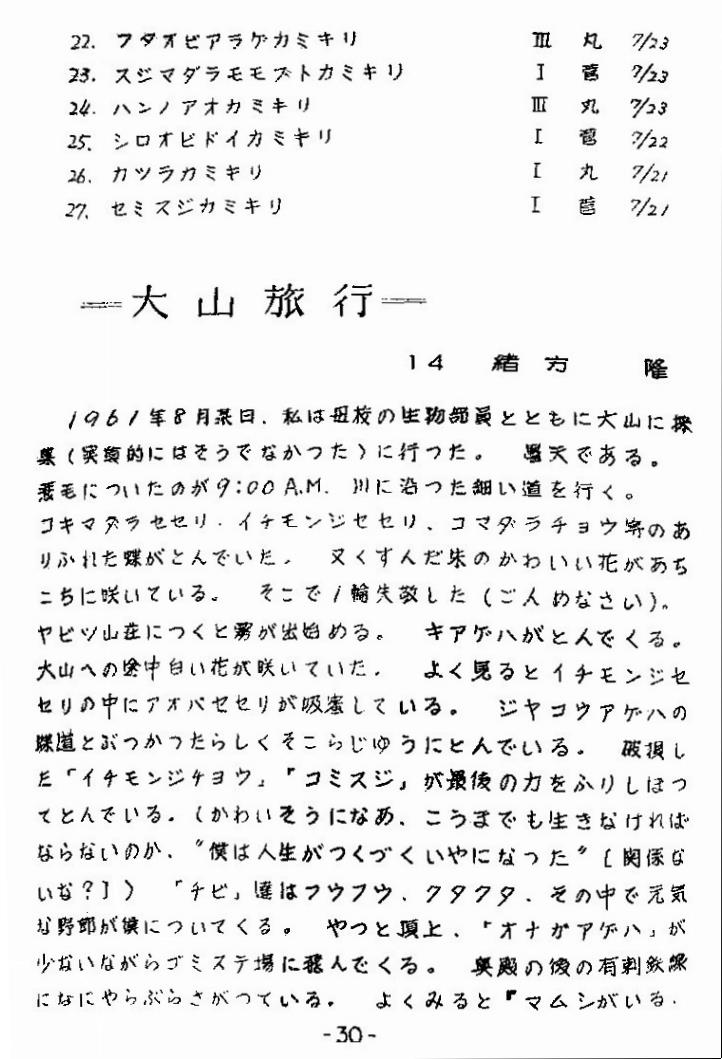 22. フタオビアラゲカミキリ Ⅲ 丸 7/23
23. スジマダラモモブトカミキリ Ⅰ 菅 7/23
24. ハンノアオカミキリ Ⅲ 丸 7/23
25. シロオビドイカミキリ Ⅰ 菅 7/22
26. カツラカミキリ Ⅰ 丸 7/21
27. セミスジカミキリ Ⅰ 菅 7/21
＝大山旅行＝
14 緒方 隆
1961年8月某日、私は母校の生物部員とともに大山に採
集(実績的にはそうでなかつた)に行つた。 曇天である。
蓑毛についたのが9:00 A.M. 川に沿つた細い道を行く。
コキマダラセセリ、イチモンジセセリ、コマダラチョウ等のあ
りふれた蝶がとんでいた。 又くすんだ朱のかわいい花があち
こちに咲いている。 そこで1輪失敬した(ごんめなさい)。
ヤビツ山荘につくと霧が出始める。 キアゲハがとんでくる。
大山への途中白い花が咲いていた。 よく見るとイチモンジセ
セリの中にアオバセセリが吸蜜している。 ジヤコウアゲハの
蝶道とぶつかつたらしくそこらじゆうにとんでいる。 破損し
た「イチモンジチヨウ」「コミスジ」が最後の力をふりしぼつ
てとんでいる。(かわいそうになあ、こうまでも生きなければ
ならないのか、〝僕は人生がつくづくいやになつた〟[関係な
いな?]) 「チビ」達はフウフウ、クタクタ、その中で元気
な野郎が僕についてくる。 やつと頂上、「オナガアゲハ」が
少ないながらゴミステ場に飛んでくる。 奥殿の後の有刺鉄線
になにやらぶらさがつている。 よくみると『マムシがいる.
-30-